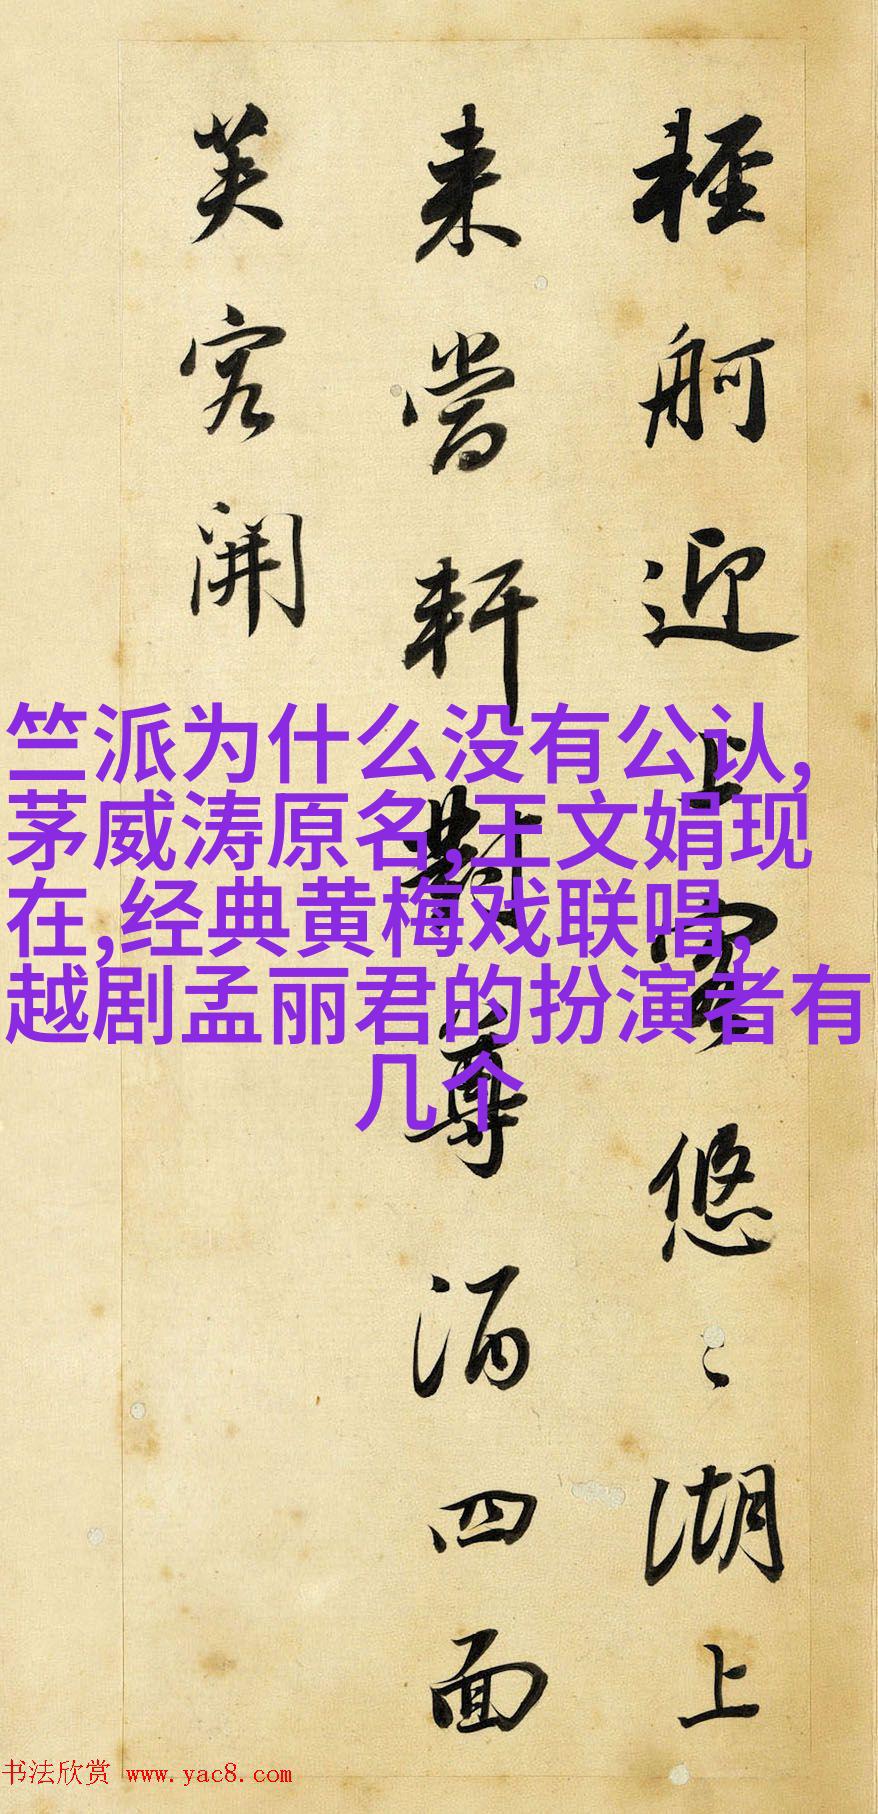 輕舸迎上客悠〻湖上
来當軒對尊酒四面
芙容開
竺派为什么没有公认,
茅威涛原名,王文娟现
在,经典黄梅戏联唱,
越剧孟丽君的扮演者有
几个
书法欣赏 www.yac8.com